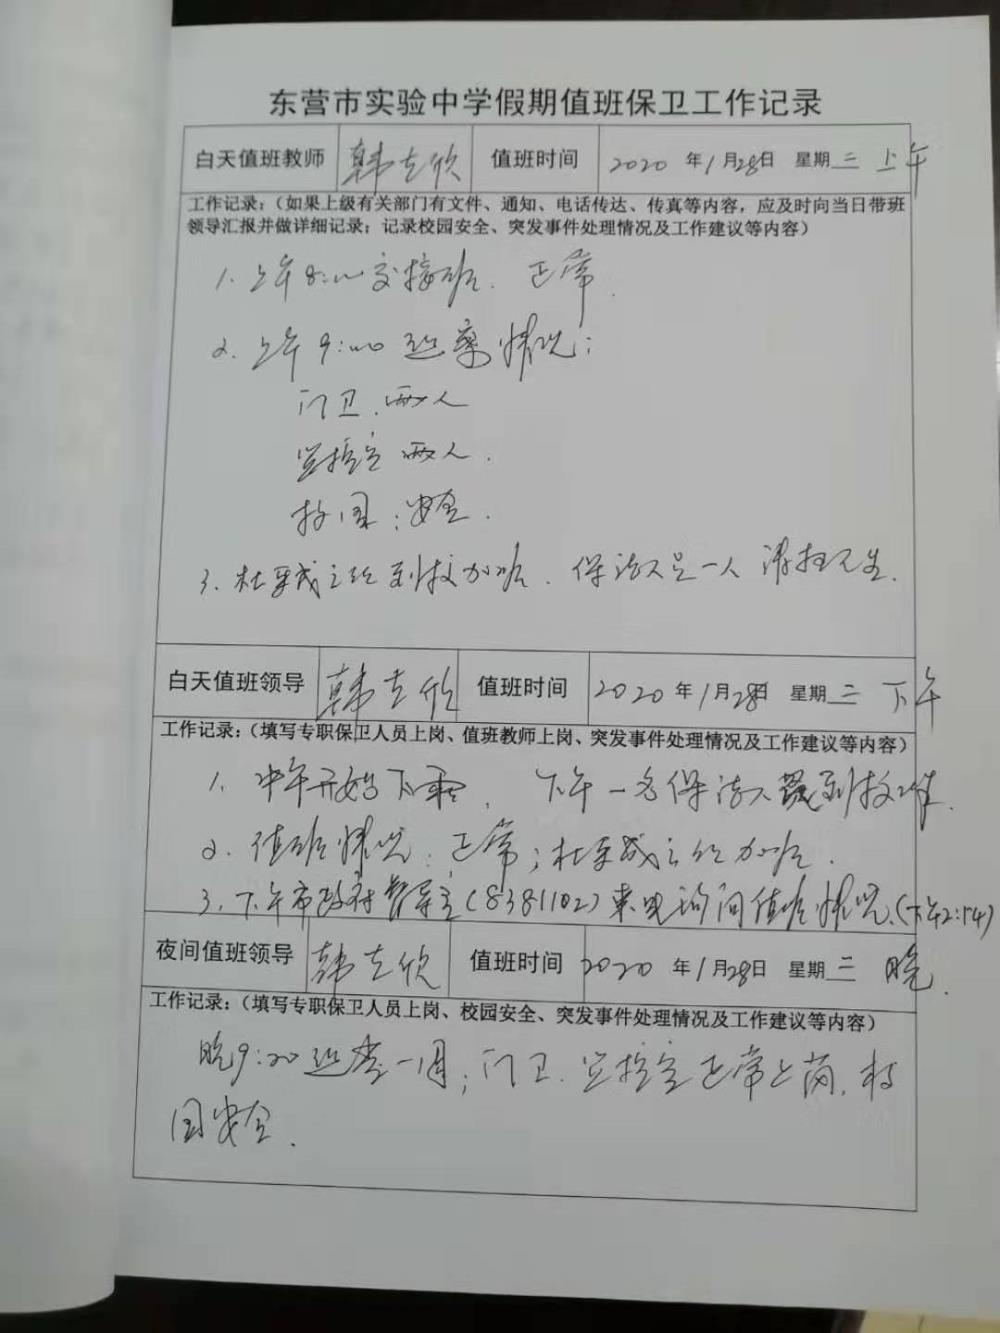 东营市实验中学假期值班保卫工作记录
白天值班教师 韩 欣 值班时间 2020 年 1 月 28 日 星期 二 上午
工作记录:(如果上级有关部门有文件、通知、电话传达、传真等内容,应及时向当日带班
领导汇报并做详细记录;记录校园安全、突发事件处理情况及工作建议等内容)
1. 上午8:00交接班. 正常.
2. 上午9:00 巡察情况:
门卫. 两人
监控室 两人.
校园: 安全.
3. 杜 成主任到校加班. 保洁人员一人 清扫卫生.
白天值班领导 韩 欣 值班时间 2020 年 1 月 28 日 星期 二 下午
工作记录:(填写专职保卫人员上岗、值班教师上岗、突发事件处理情况及工作建议等内容)
1. 中午开始下雪. 下午一名保洁人员到校工作.
2. 值班情况: 正常; 杜 成主任加班.
3. 下午市政府督导室(8381102)来电询问值班情况.(下午2:54)
夜间值班领导 韩 欣 值班时间 2020 年 1 月 28 日 星期 二 晚.
工作记录:(填写专职保卫人员上岗、校园安全、突发事件处理情况及工作建议等内容)
晚9:20 巡查一周; 门卫. 监控室正常上岗. 校
园安全.